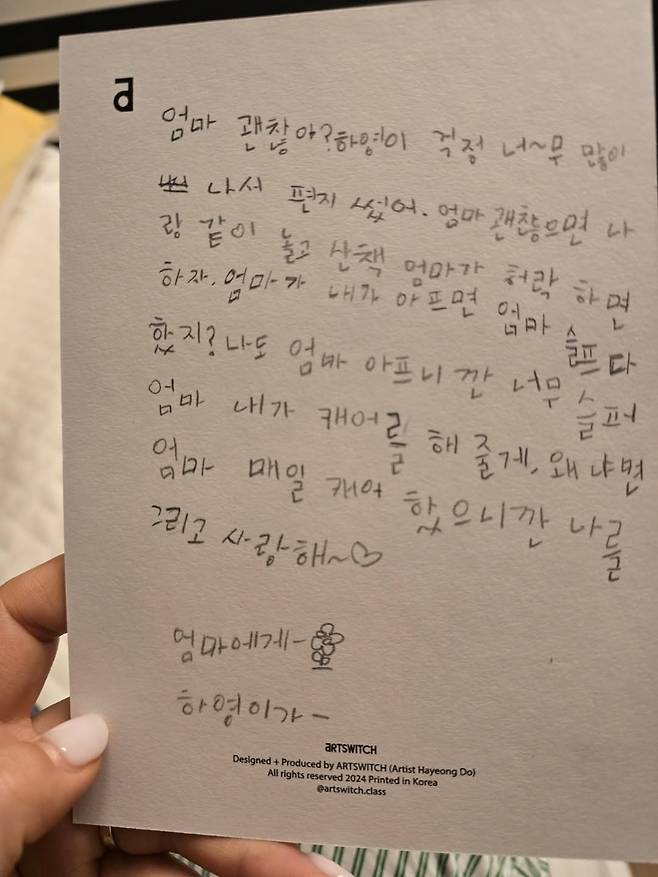 a
엄마 괜찮아?하영이 걱정 너~무 많이
나서 편지 썼어. 엄마 괜찮으면 나
랑 같이 놀고 산책 엄마가 허락 하면
하자. 엄마가 내가 아프면 엄마 슬프다
했지? 나도 엄마 아프니 깐 너무 슬퍼
엄마 내가 캐어를 해 줄게, 왜냐면
엄마 매일 캐어 했으니깐 나를
그리고 사랑해~♡
엄마에게-
하영이가-
aRTSWITCH
Designed + Produced by ARTSWITCH (Artist Hayeong Do)
All rights reserved 2024 Printed in Korea
@artswitch.class